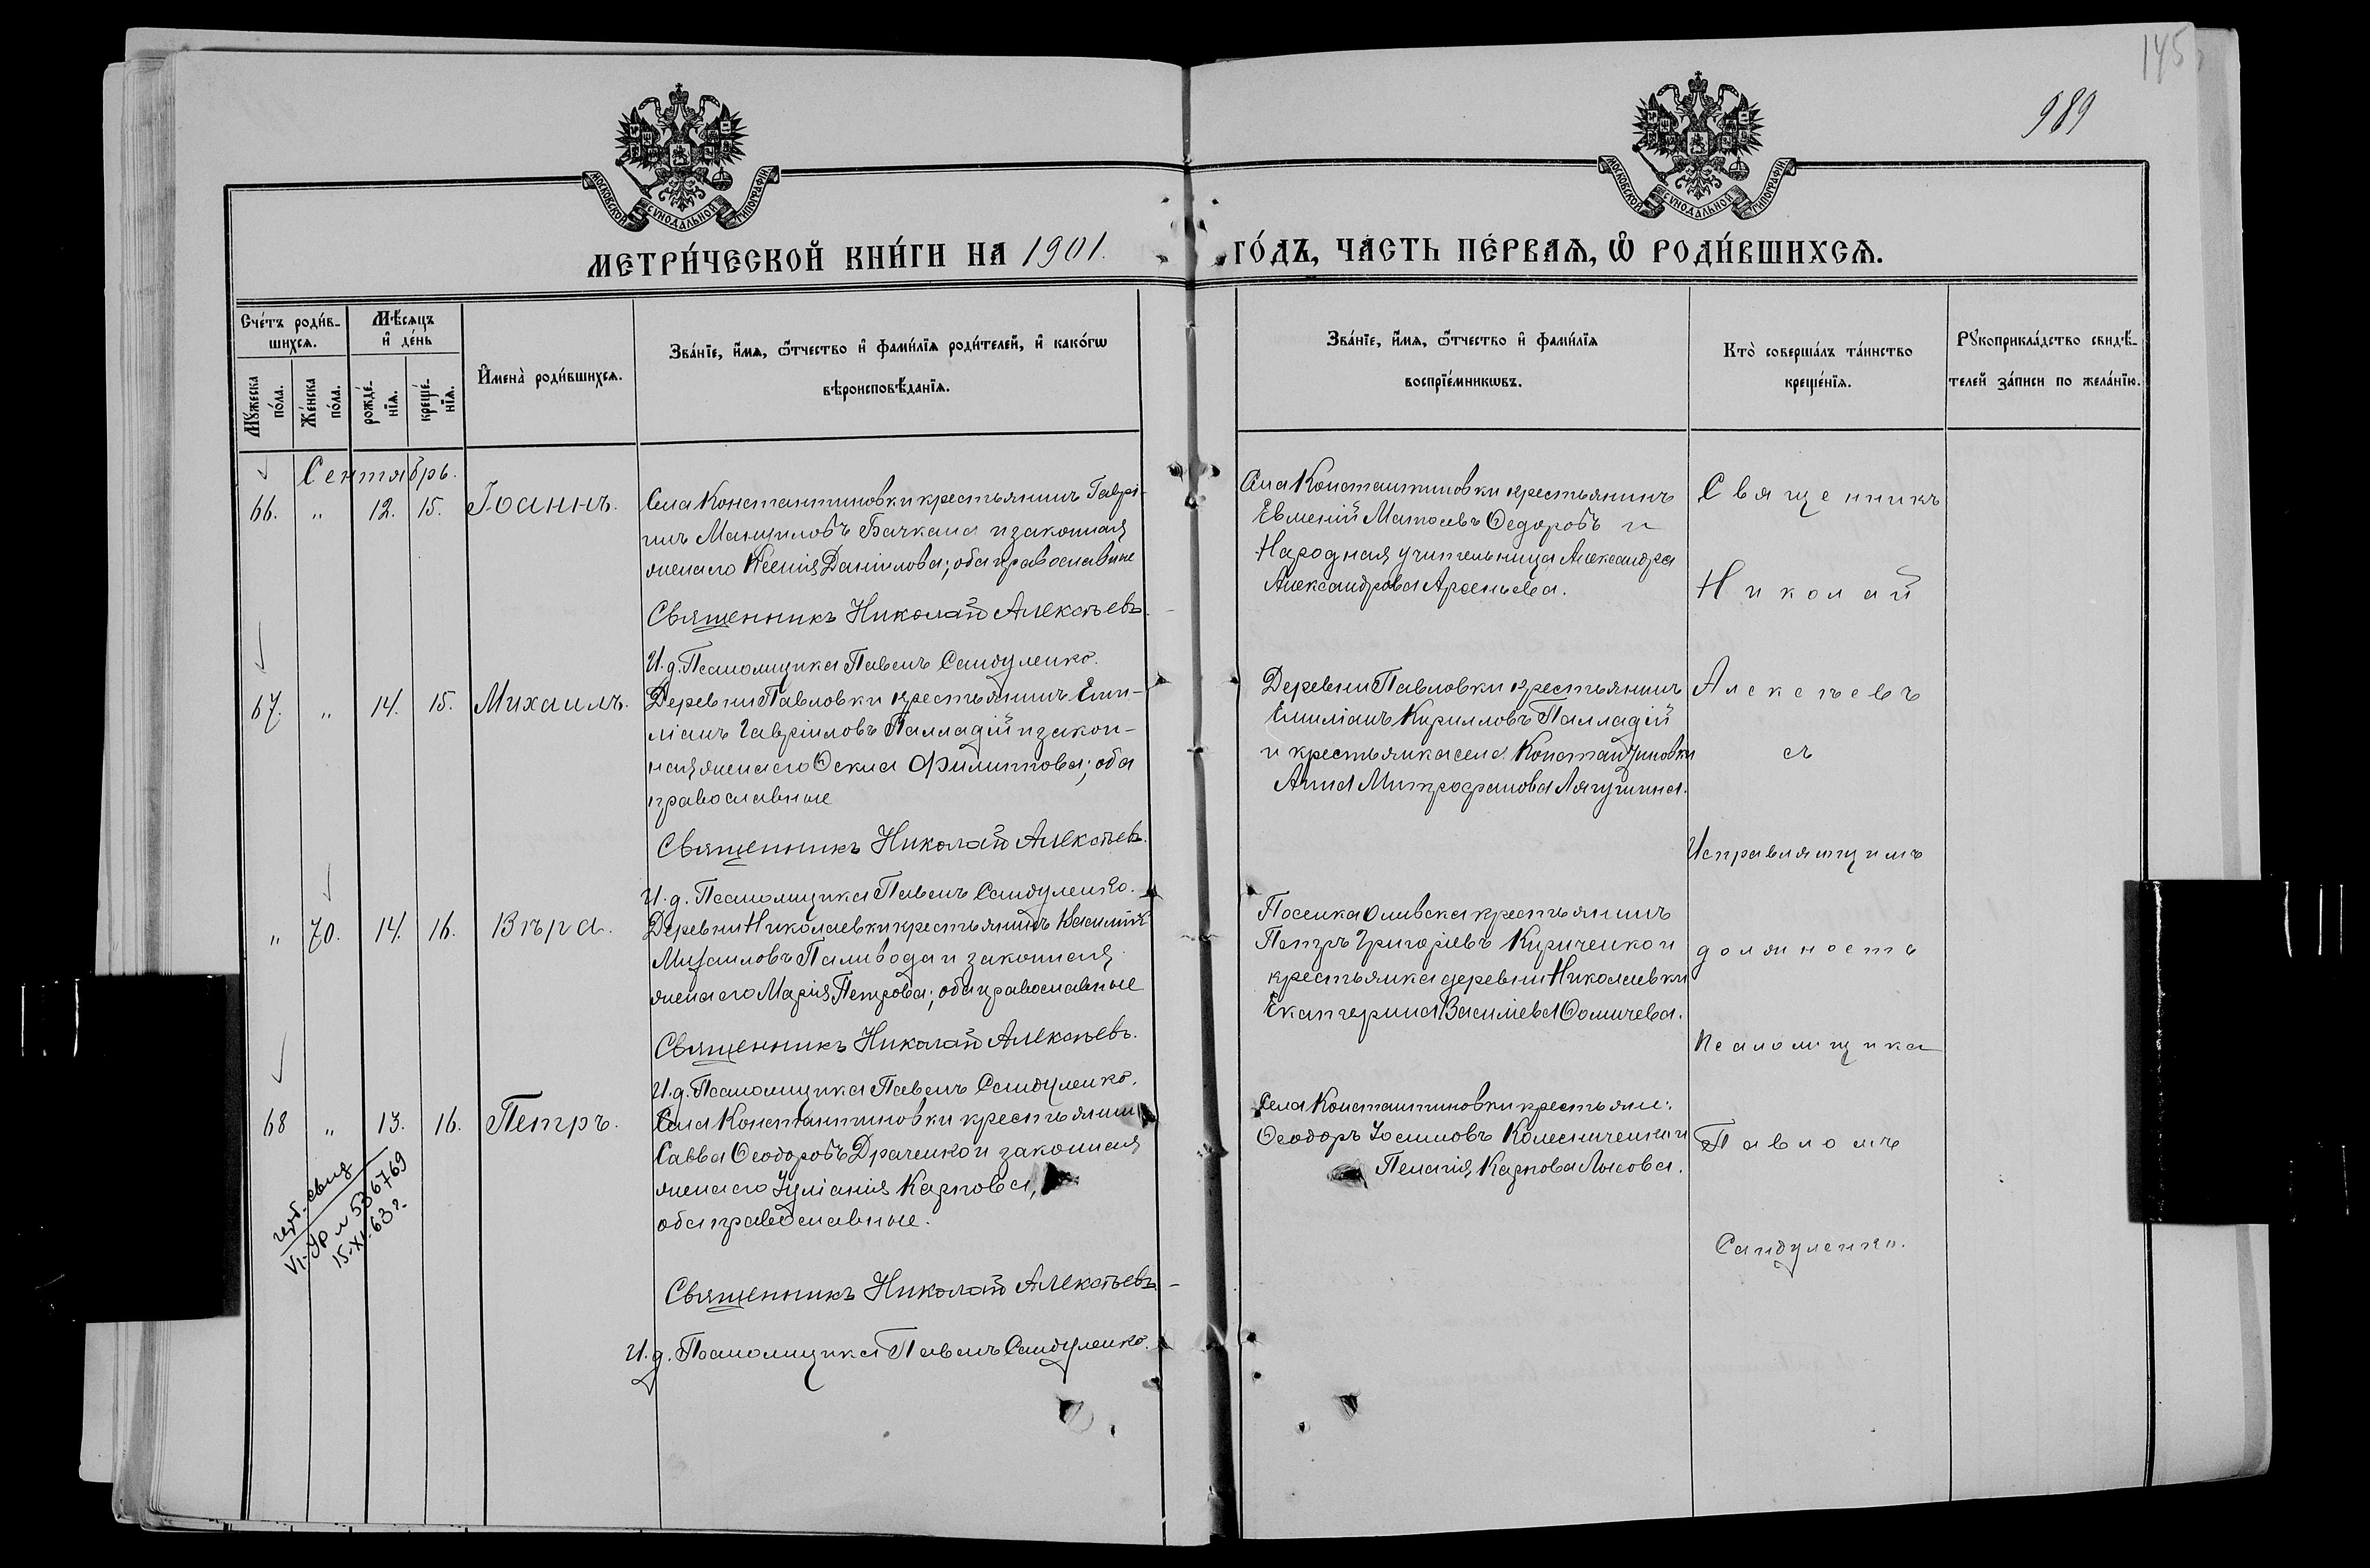 145
989
МОСКОВСКОЙ СѴНОДАЛЬНОЙ ТИПОГРАФІИ
МОСКОВСКОЙ СѴНОДАЛЬНОЙ ТИПОГРАФІИ
МЕТРИ́ЧЕСКОЙ КНИ́ГИ НА 1901.
ГО́ДЪ, ЧА́СТЬ ПЕ́РВАѦ, Ѽ РОДИ́ВШИХСѦ.
Сче́тъ роди́в-
шихсѧ.
Мꙋ́жеска по́ла.
Же́нска по́ла.
Мѣ́сѧцъ
и҆ де́нь
рожде́-
нїѧ.
креще́-
нїѧ.
И҆мена̀ роди́вшихсѧ.
Зва́нїе, и҆́мѧ, ѻ҆́тчество и҆ фами́лїѧ роди́телей, и҆ како́гѡ
вѣроисповѣ́данїѧ.
Зва́нїе, и҆́мѧ, ѻ҆́тчество и҆ фами́лїѧ
воспрїе́мникѡвъ.
Кто̀ соверша́лъ та́инство
креще́нїѧ.
Рꙋкоприкла́дство свидѣ́-
телей за́писи по жела́нїю.
Сентябрь.
66. „ 12. 15. Іоаннъ.
Села Константиновки крестьянинъ Гаврі-
илъ Мануиловъ Бачкала и законная
жена его Ксенія Даніилова; оба православные
Священникъ Николай Алексѣевъ.
И.д. Псаломщика Павелъ Сандуленко.
Села Константиновки крестьянинъ
Евменій Матѳеевъ Ѳедоровъ и
Народная учительница Александра
Александрова Арсеньева.
67. „ 14. 15. Михаилъ.
Деревни Павловки крестьянинъ Еми-
ліанъ Гавріиловъ Палладій и закон-
ная жена его Ѳекла Филиппова; оба
православные
Священникъ Николай Алексѣевъ.
И.д. Псаломщика Павелъ Сандуленко.
Деревни Павловки крестьянинъ
Емиліанъ Кирилловъ Палладій
и крестьянка села Константиновки
Анна Митрофанова Лягушина.
„ 70. 14. 16. Вѣра.
Деревни Николаевки крестьянинъ Василій
Михаиловъ Паливода и законная
жена его Марія Петрова; оба православные
Священникъ Николай Алексѣевъ.
И.д. Псаломщика Павелъ Сандуленко.
Поселка Олевска крестьянинъ
Петръ Григоріевъ Кириченко и
крестьянка деревни Николаевки
Екатерина Василіева Ѳомичева.
68 „ 13. 16. Петръ.
Села Константиновки крестьянинъ
Савва Ѳеодоровъ Драченко и законная
жена его Іуліанія Карпова,
оба православные.
Священникъ Николай Алексѣевъ.
И.д. Псаломщика Павелъ Сандуленко.
Села Константиновки крестьяне:
Ѳеодоръ Іосифовъ Колесниченко и
Пелагія Карпова Лысова.
VI-УР № 536769
15-XI-63 г.
Священникъ
Николай
Алексѣевъ
съ
Исправляющимъ
должность
Псаломщика
Павломъ
Сандуленко.